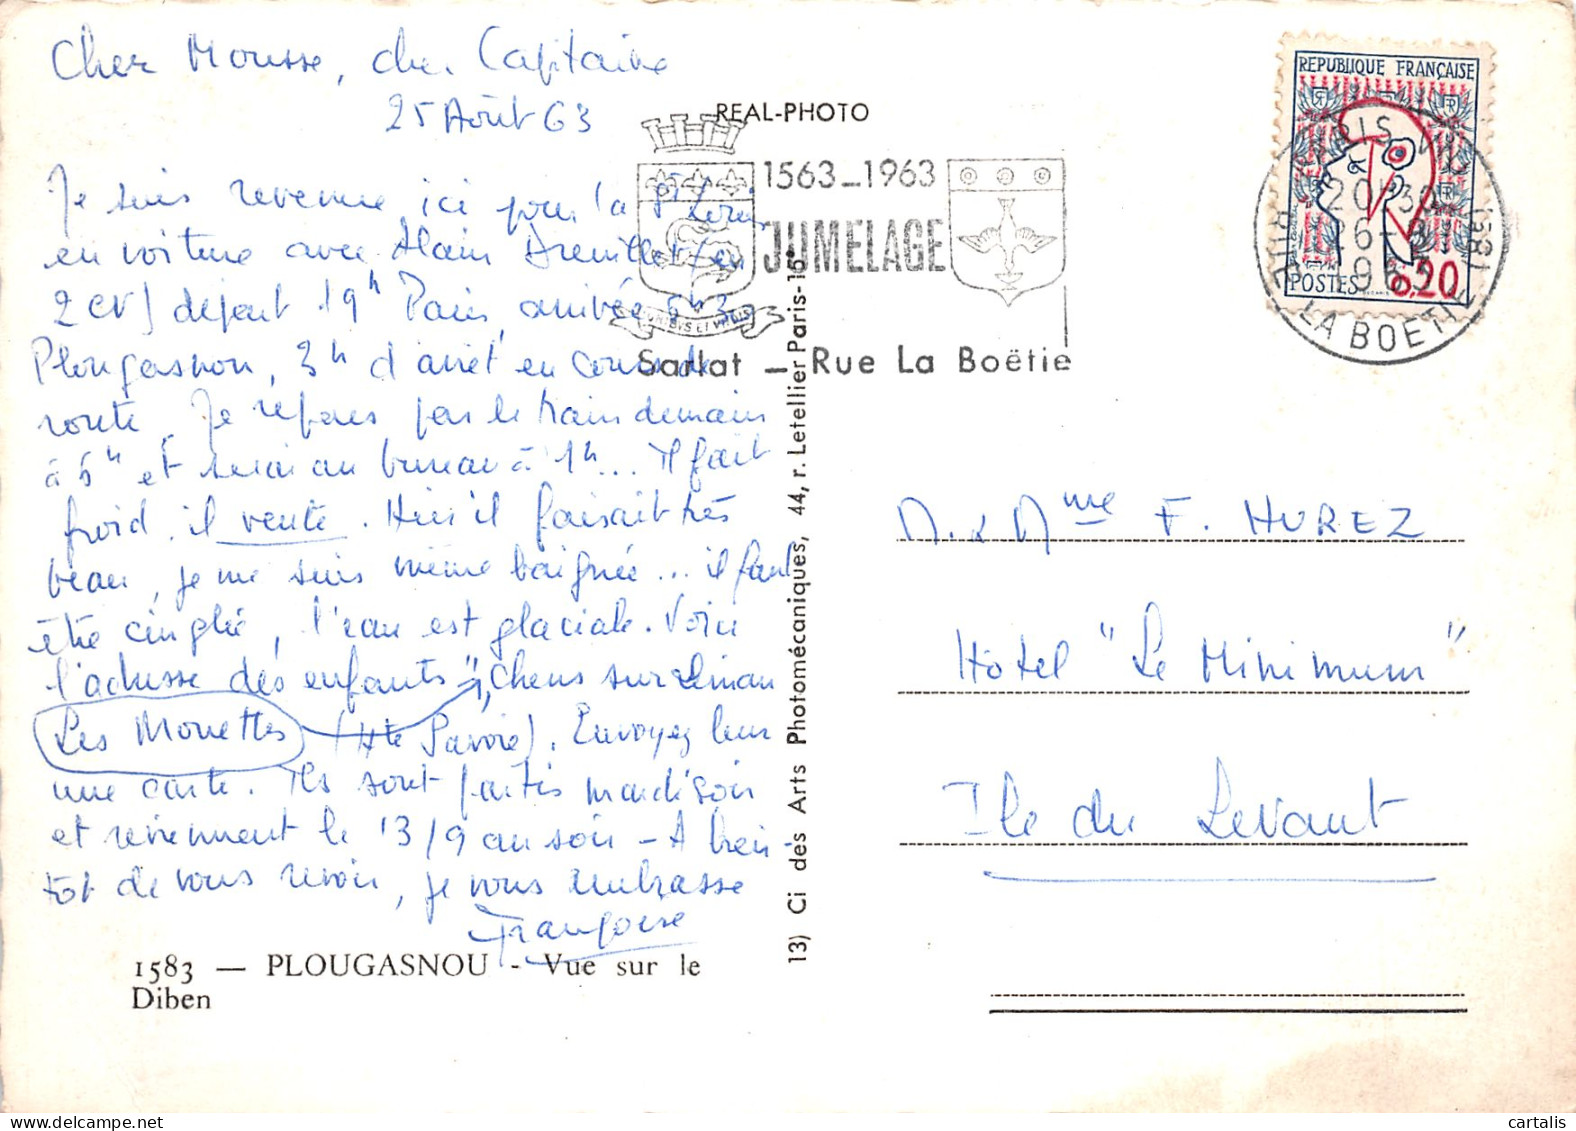 Cher Mousse, cher Capitaine
25 Août 63
Je suis revenue ici pour la St Louis
en voiture avec Alain (en
2 CV) départ 19h Paris, arrivée 5h3
Plougasnou, 3h d'arrêt en cours de
route. Je repars par le train demain
à 5h et serai au bureau à 1h... Il fait
froid, il vente. Hier il faisait très
beau, je me suis même baignée... il faut
être cinglée, l'eau est glaciale. Voici
l'adresse des enfants Chens sur Léman
Les Mouettes (Hte Savoie). Envoyez leur
une carte. Ils sont partis mardi soir
et reviennent le 13/9 au soir - A bien-
tôt de vous revoir, je vous embrasse
Françoise
1583 — PLOUGASNOU - Vue sur le
Diben
REAL-PHOTO
13) Ci des Arts Photomécaniques, 44, r. Letellier Paris-15e
1563_1963
JUMELAGE
Sarlat _ Rue La Boëtie
REPUBLIQUE FRANÇAISE
POSTES 0,20
PARIS VIII
20H30
26-8
1963
RUE LA BOETIE (8e)
M. & Mme F. HUREZ
Hôtel "Le Minimum"
Ile du Levant
cartalis